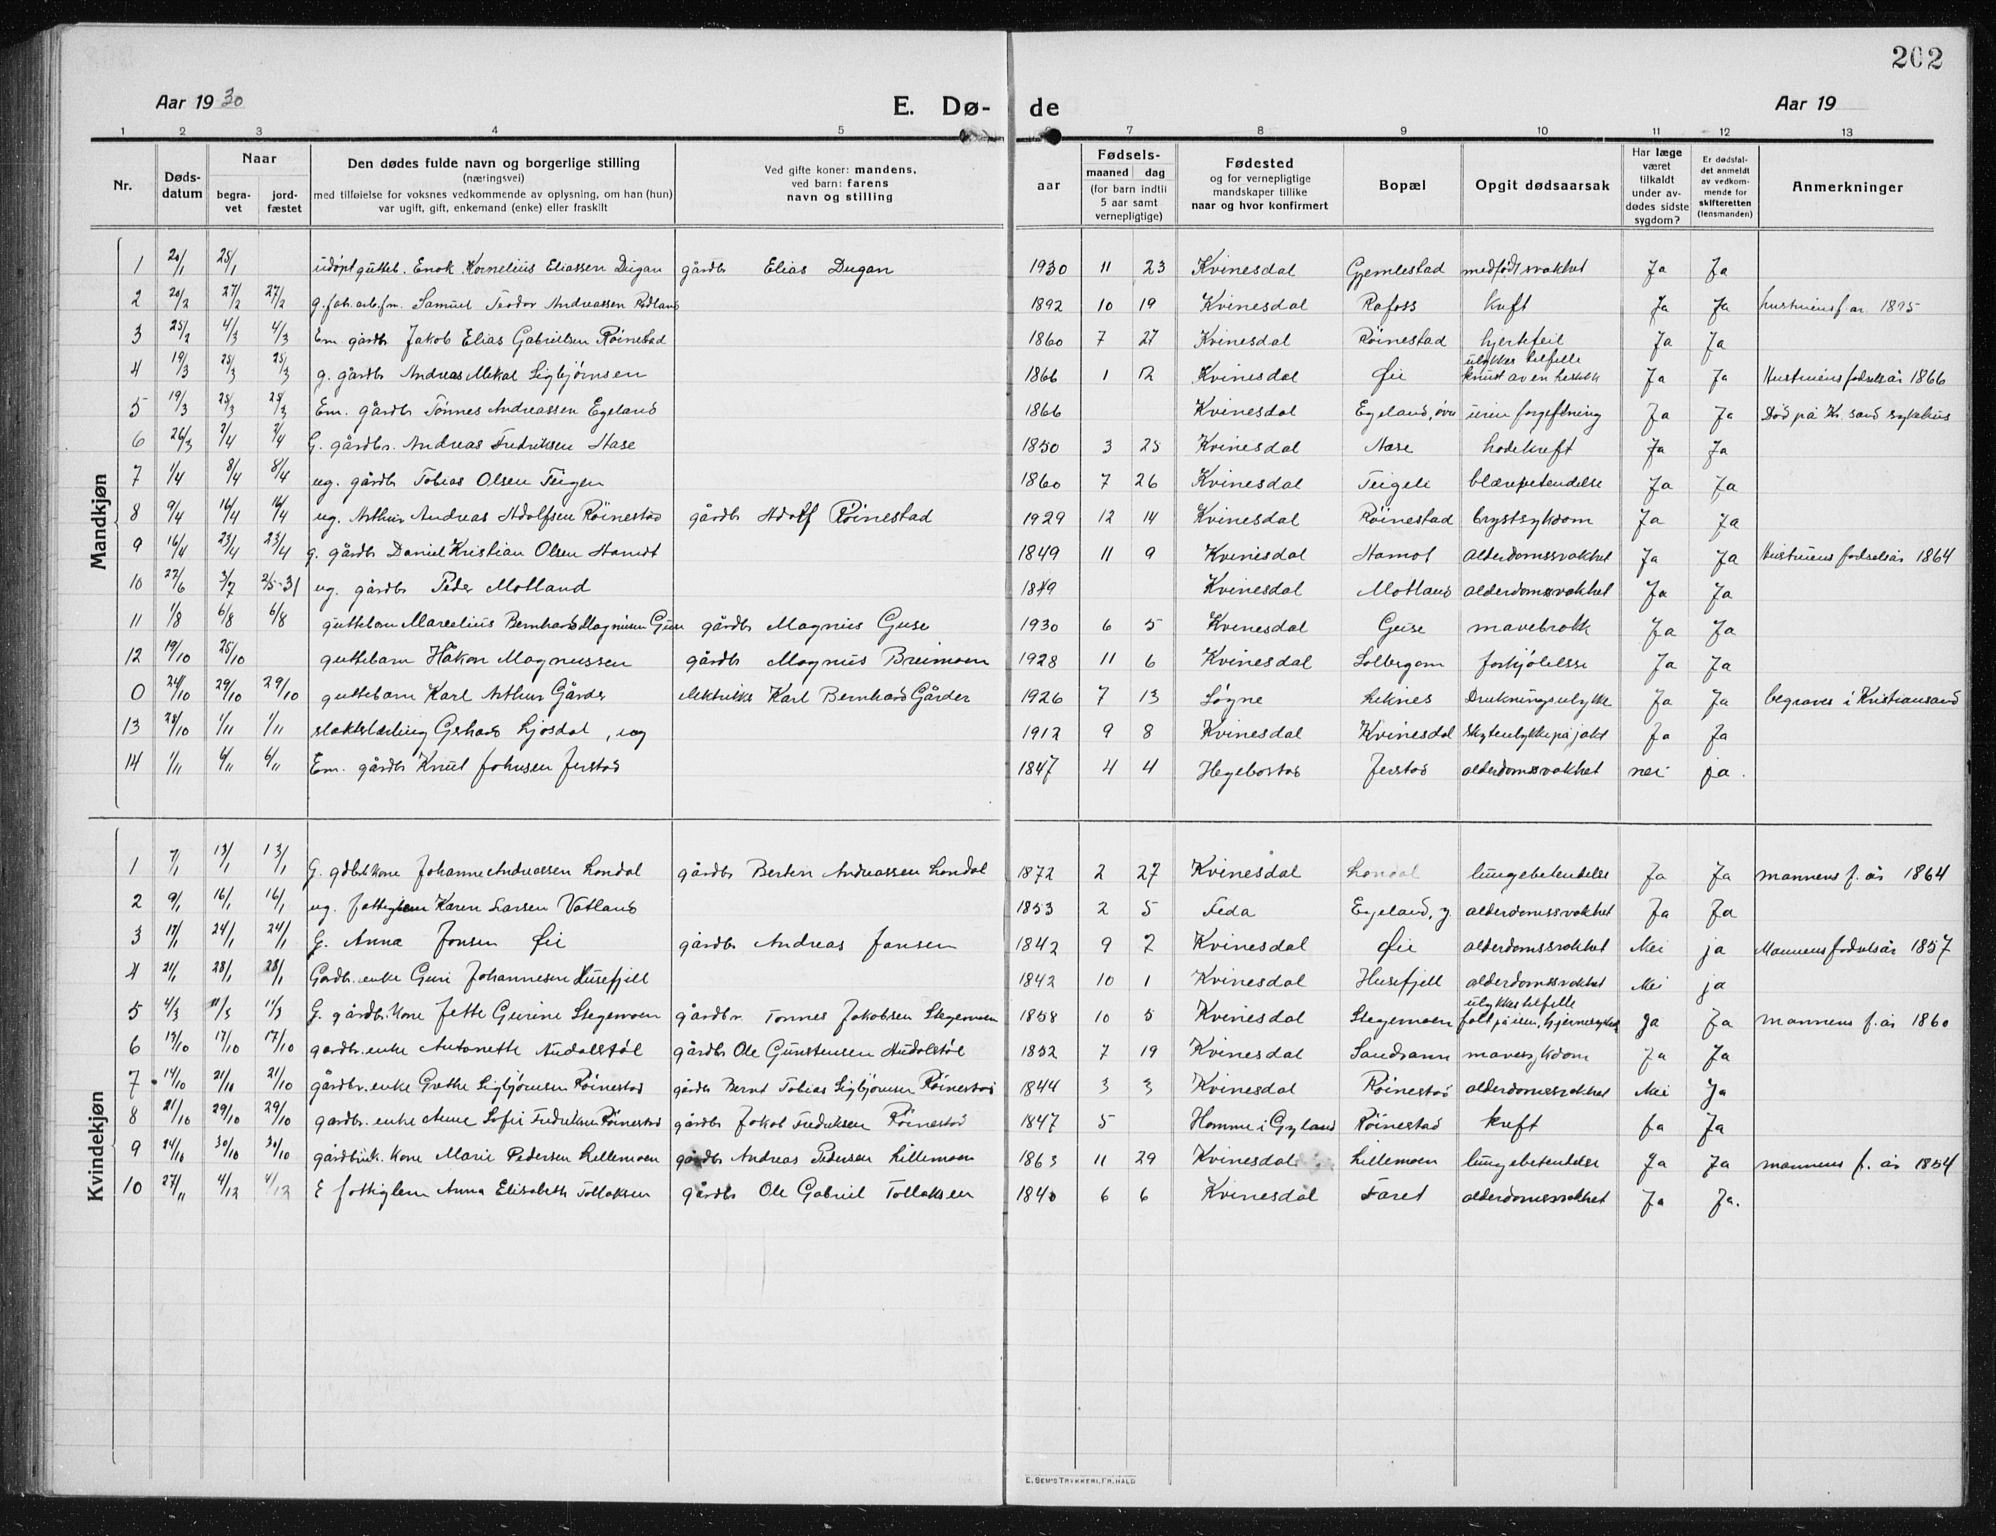 202
Aar 1930 E. Dø- de Aar 19
1 2 3 4 5 7 8 9 10 11 12 13
Nr. Dødsdatum Naar begravet jordfæstet Den dødes fulde navn og borgerlige stilling (næringsvei) med tilføielse for voksnes vedkommende av oplysning, om han (hun) var ugift, gift, enkemand (enke) eller fraskilt Ved gifte koner: mandens, ved barn: farens navn og stilling aar Fødsels- maaned dag (for barn indtil 5 aar samt vernepligtige) Fødested og for vernepligtige mandskaper tillike naar og hvor konfirmert Bopæl Opgit dødsaarsak Har læge været tilkaldt under avdødes sidste sygdom? Er dødsfaldet anmeldt av vedkommende for skifteretten (lensmanden) Anmerkninger
Mandkjøn
1 20/1 25/1 udøpt gutteb. Enok Kornelius Eliassen Dugan gårdbr Elias Dugan 1930 11 23 Kvinesdal Gjemlestad medfødt svakhet Ja Ja
2 20/2 27/2 27/2 g. fab. arb. fm. Samuel Teodor Andreassen Rødland 1892 10 19 Kvinesdal Rafoss kreft Ja Ja hustruens f. ar. 1895
3 25/2 4/3 4/3 Em. gårdbr Jakob Elias Gabrielsen Röinestad 1860 7 27 Kvinesdal Röinestad hjertefeil Ja Ja
4 19/3 25/3 25/3 g. gårdbr Andreas Mikal Sigbjørnsen 1866 1 12 Kvinesdal Øie ulykkestilfelle knust av en hestekk Ja Ja Hustruens fødselsår 1866
5 19/3 25/3 25/3 Em. gårdbr Tønnes Andreassen Egeland 1866 Kvinesdal Egeland, øvre urinforgiftning Ja Ja Død på Kr. sand sykehus
6 26/3 2/4 2/4 G. gårdbr. Andreas Fredriksen Aase 1850 3 25 Kvinesdal Aase hodekreft Ja Ja
7 1/4 8/4 8/4 ug. gårdbr Tobias Olsen Teigen 1860 7 26 Kvinesdal Teigen blærebetendelse Ja Ja
8 9/4 16/4 16/4 ug. Arthur Andreas Adolfsen Röinestad gårdbr Adolf Röinestad 1929 12 14 Kvinesdal Röinestad brystsykdom Ja Ja
9 16/4 23/4 23/4 g. gårdbr Daniel Kristian Olsen Hamot 1849 11 9 Kvinesdal Hamot alderdomssvakhet Ja Ja Hustruens fødselsår 1864
10 27/6 3/7 2/5-31 ug. gårdbr Peder Motland 1849 Kvinesdal Motland alderdomssvakhet Ja Ja
11 1/8 6/8 6/8 guttebarn Marcelius Bernhard Magnusen Guse gårdbr Magnus Guse 1930 6 5 Kvinesdal Guse mavebrokk Ja Ja
12 19/10 25/10 guttebarn Håkon Magnussen gårdbr Magnus Breimoen 1928 11 6 Kvinesdal Solbergom forkjølelse Ja Ja
0 24/10 29/10 29/10 guttebarn Karl Arthur Gårder elektriker Karl Bernhard Gårder 1926 7 13 Søgne Liknes Drukningsulykke Ja Ja begraves i Kristiansand
13 28/10 1/11 1/11 slakterlærling Gerhard Ljosdal, ug 1912 9 8 Kvinesdal Kvinesdal Skyteulykke på jakt Ja Ja
14 1/11 6/11 6/11 Em. gårdbr Knut Johnsen Jerstad 1847 4 4 Hegebostad Jerstad alderdomssvakhet nei ja.
Kvindekjøn
1 7/1 13/1 13/1 G. gdbrkone Johanne Andreassen Londal gårdbr Berten Andreassen Londal 1872 2 27 Kvinesdal Londal lungebetendelse Ja Ja mannens f. år 1864
2 9/1 16/1 16/1 ug. fattiglem Karen Larsen Vatland 1853 2 5 Feda Egeland, y. alderdomssvakhet Ja Ja
3 17/1 24/1 24/1 G. Anna Jonsen Øie gårdbr Andreas Jansen 1842 9 2 Kvinesdal Øie alderdomssvakhet Nei ja Mannens fødselsår 1857
4 21/1 28/1 28/1 Gardbr. enke Guri Johannesen Husefjell 1842 10 1 Kvinesdal Husefjell alderdomssvakhet Nei ja
5 4/3 11/3 11/3 G. gårdbr. kone Jette Gurine Stegemoen gårdbr. Tønnes Jakobsen Stegemoen 1858 10 5 Kvinesdal Stegemoen ulykkestilfelle falt på isen, hjernerystelse Ja Ja mannens f. år 1860
6 13/10 17/10 17/10 gardbr. enke Antonette Audalstøl gårdbr Ole Gunstensen Audalstøl 1852 7 19 Kvinesdal Sandvann mavesykdom Ja Ja
7 14/10 21/10 21/10 gårdbr. enke Grethe Sigbjørnsen Röinestad gårdbr Bernt Tobias Sigbjørnsen Röinestad 1844 3 3 Kvinesdal Röinestad alderdomssvakhet Nei Ja
8 21/10 29/10 29/10 gardbr. enke Anne Sofie Fredriksen Röinestad gårdbr Jakob Fredriksen Röinestad 1847 5 Homme i Gyland Röinestad kreft Ja Ja
9 24/10 30/10 30/10 gårdbruk. kone Marie Pedersen Lillemoen gårdbr Andreas Pedersen Lillemoen 1863 11 29 Kvinesdal Lillemoen lungebetendelse Ja Ja mannens f. år 1854
10 27/11 4/12 4/12 E fattiglem Anna Elisabeth Tollaksen gårdbr Ole Gabriel Tollaksen 1840 6 6 Kvinesdal Faret alderdomssvakhet Ja Ja.
E. SEM'S TRYKKERI, FR.HALD